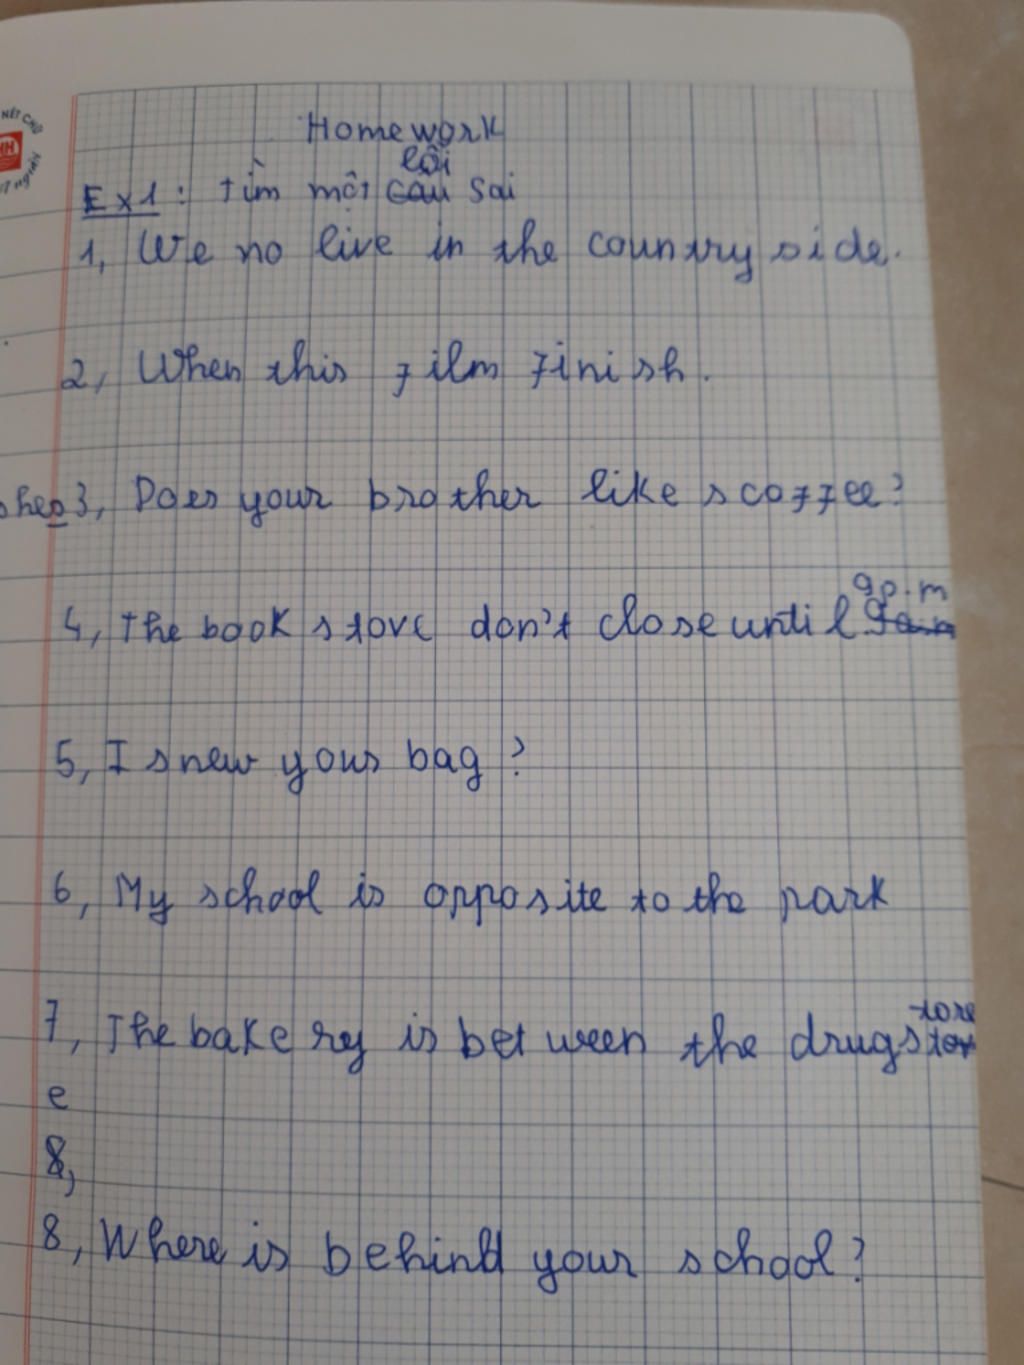 NÉT CHỮ
HH
NGƯỜI
Homework
lỗi
Ex1: Tìm một câu sai
1, We no live in the countryside.
2, When this film finish.
3, Does your brother likes coffee?
9p.m
4, The book store don't close until
5, Is new your bag?
6, My school is opposite to the park
tore
7, The bakery is between the drugstor
e
8,
8, Where is behind your school?